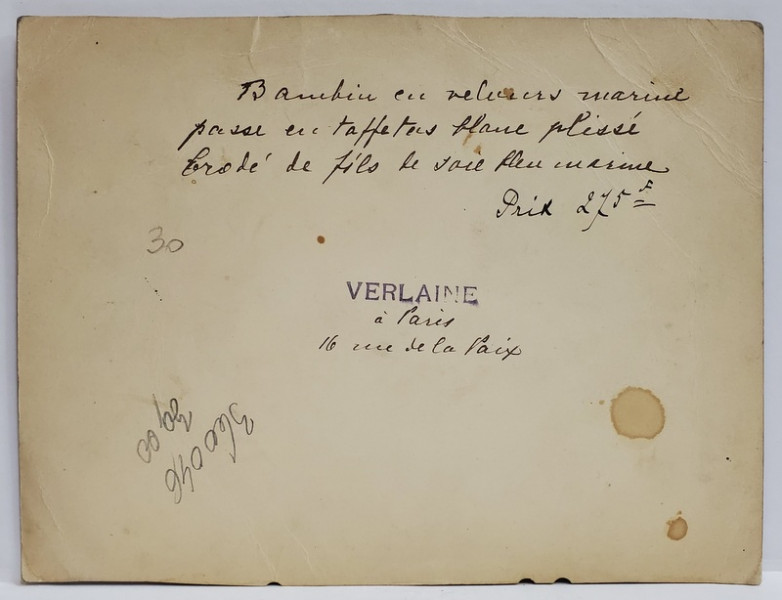 Bambin en velours marine
passe en taffetas blanc plissé
brodé de fils de soie bleu marine
Prix 275 f
30
VERLAINE
à Paris
16 rue de la Paix